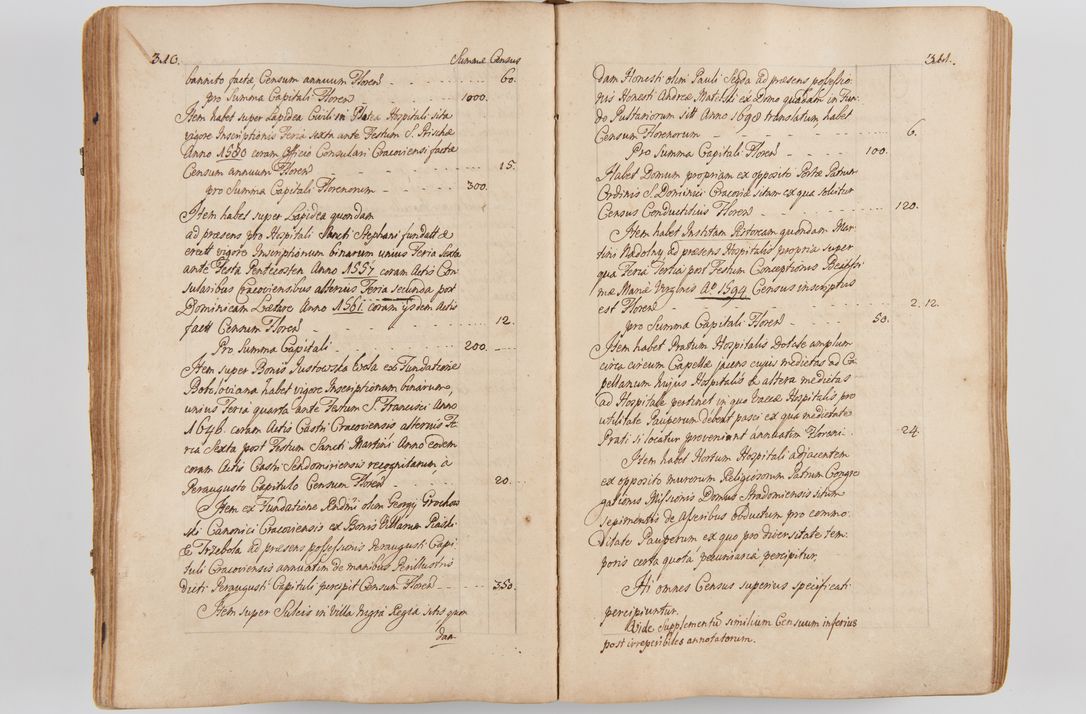 310. Summæ Census
bannito factæ Censum annuum Floren 60.
pro Summa Capitali Floren 1000.
Item habet super Lapidea Civili in Platea Hospitali sita
vigore Inscriptionis Feria Sexta ante Festum S. Priscæ
Anno 1580 coram Officio Consulari Cracoviensi factæ
Censum annuum Floren 15.
pro Summa Capitali Florenorum 300.
Item habet super Lapidea quondam
ad præsens pro Hospitali Sancti Stephani fundatt &
erectt vigore Inscriptionum binarum unius Feria Sexta
ante Festa Pentecosten Anno 1557 coram Actis Con
sularibus Cracoviensibus alterius Feria secunda post
Dominicam Lætare Anno 1561. coram ijsdem Actis
factt Censum Floren 12.
Pro Summa Capitali 200.
Item super Bonis Justowska Wola ex Fundatione
habet vigore Inscriptionum binarum,
unius Feria quarta ante Festum S. Francisci Anno
1646. coram Actis Castri Cracoviensis alterius Fe
ria Sexta post Festum Sancti Martini Anno eodem
coram Actis Castri Sendomiriensis recognitarum, à
Peraugusto Capitulo Censum Floren 20.
Item ex Fundatione Rndmi olim Georgij Grochow
ski Canonici Cracoviensis ex Bonis Villarum Piaski
& Trzebola ad præsens possessionis Peraugusti Capi
tuli Cracoviensis annuatim de manibus Perillustris
dicti Peraugusti Capituli percipit Censum Floren 350.
Item super Sulcis in Villa Nigra Regia sitis quon
dam
311.
dam Honesti olim Pauli Sepda ad præsens possessio
nis Honesti Andreæ Matelski ex Domo quadam in Fun
do Pustariorum sitt Anno 1698 translatum, habet
Censum Florenorum 6.
Pro Summa Capitali Floren 100.
Habet Domum propriam ex opposito Portæ Patrum
Ordinis S. Dominici Cracoviæ sitam ex qua solvitur
Census Conductitius Floren 120.
Item habet Institam Pistoream quondam Mar
tini Nadorny ad præsens Hospitalis propria super
qua Feria Tertia post Festum Conceptionis Beatissi
mæ Mariæ Virginis Ao 1594 Census inscriptus
est Floren 2. 12.
pro Summa Capitali Floren 50.
Item habet Pratum Hospitalis Dotose amplum
circa circum Capellæ jacens cujus medietas ad Ca
pellanum hujus Hospitalis & altera medietas
ad Hospitale pertinet in quo Vaccæ Hospitalis pro
utilitate Pauperum debent pasci ex qua medietate
Prati si locatur proveniunt annuatim Floreni 24.
Item habet Hortum Hospitali adjacentem
ex opposito murorum Religiosorum Patrum Congre
gationis Missionis Domus Stradomiensis situm
sepimentis de Asseribus obductum pro commo
ditate Pauperum ex quo pro diversitate tem
poris certa quota pecuniaria percipitur,
Hi omnes Census superius specificati
percipiuntur.
Vide Supplementum similium Censuum inferius
post irreperibiles annotatorum.